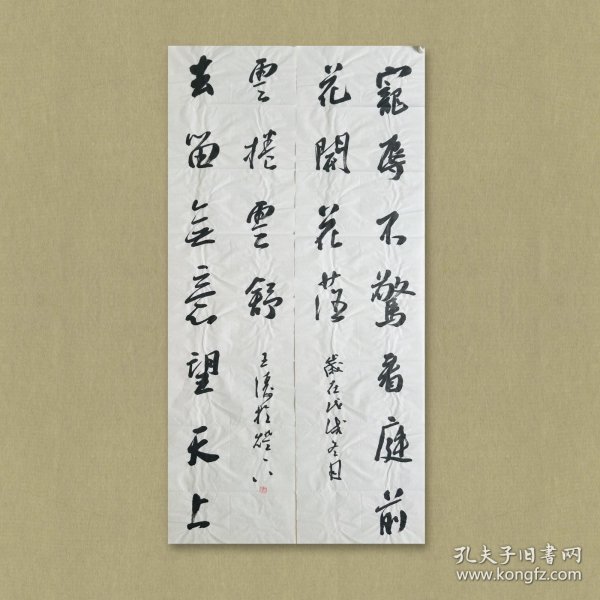 寵辱不驚看庭前
花開花落
歲在戊戌冬月
去留無意望天上
雲捲雲舒
王濤於燈下
孔夫子旧书网
www.kongfz.com